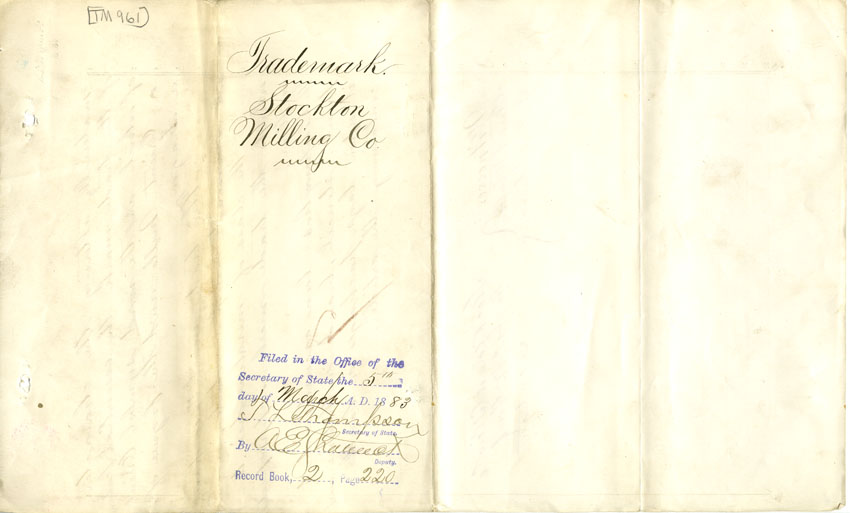 [TM 961]
Trademark.
Stockton
Milling Co.
Filed in the Office of the
Secretary of State the 5th
day of March A. D. 1883
Thompson
Secretary of State.
By A E
Deputy.
Record Book, 2, Page 220